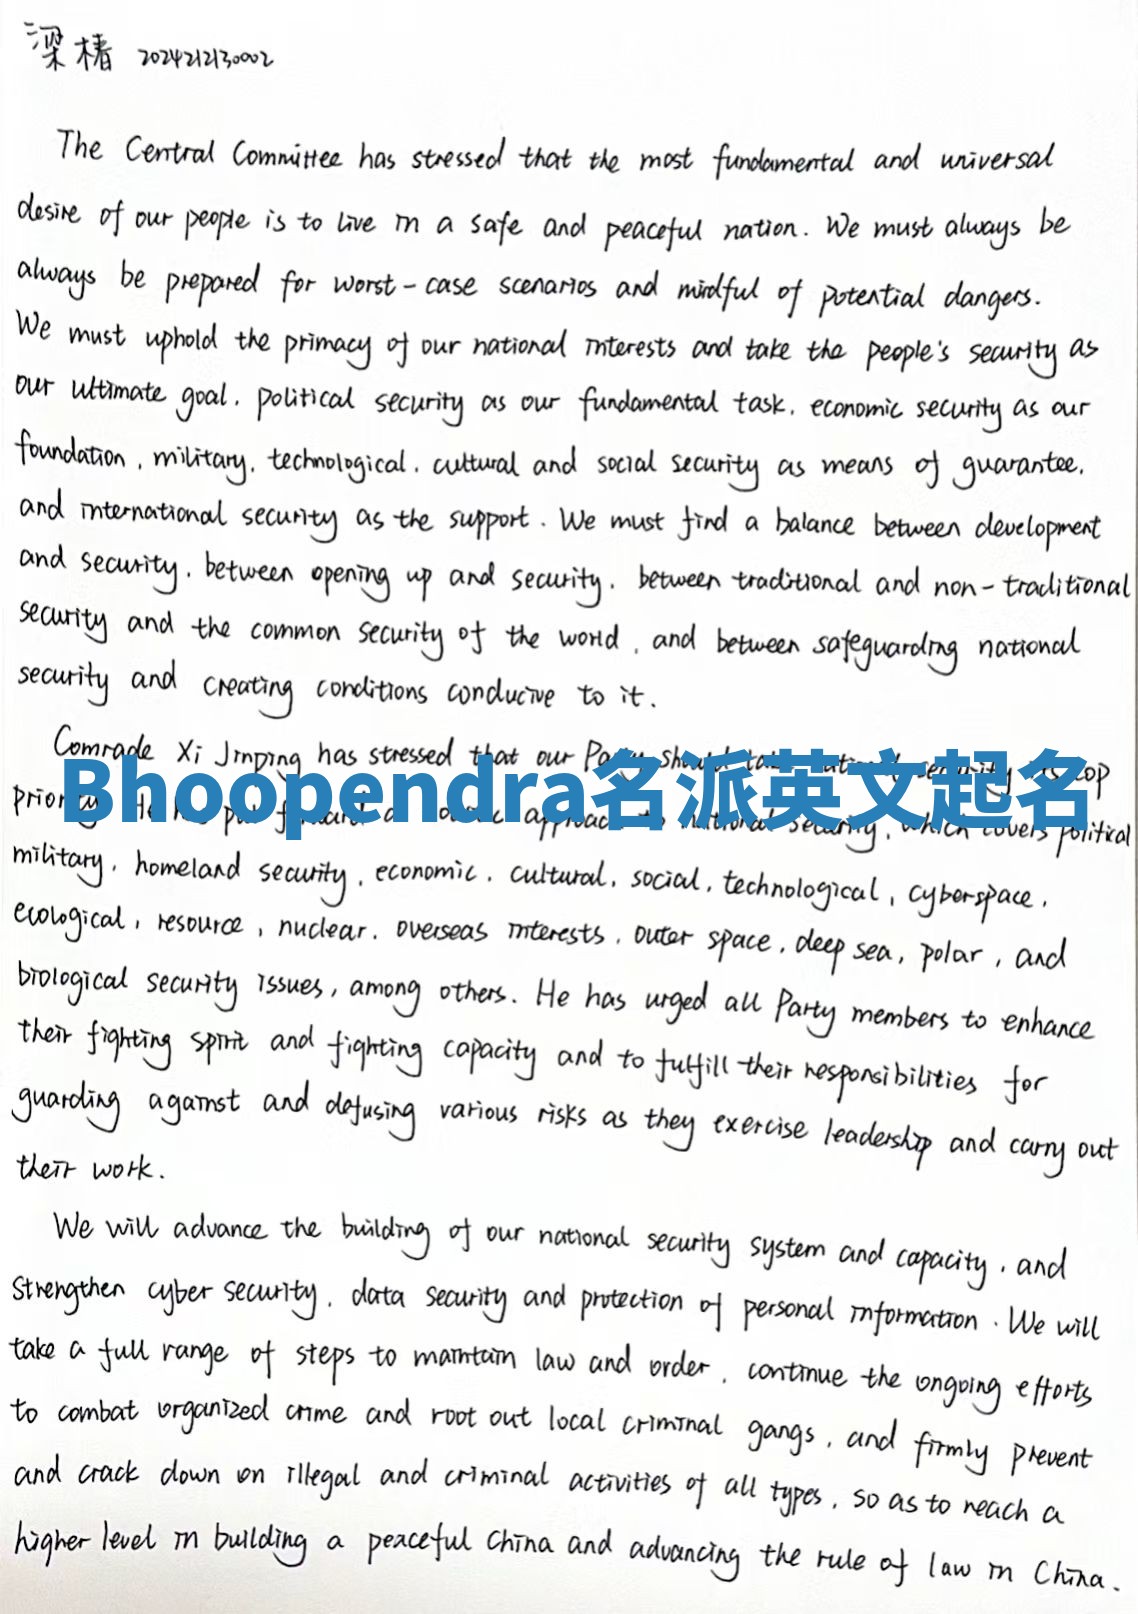 梁椿 2024212130002
The Central Committee has stressed that the most fundamental and universal
desire of our people is to live in a safe and peaceful nation. We must always be
always be prepared for worst-case scenarios and mindful of potential dangers.
We must uphold the primacy of our national interests and take the people's security as
our ultimate goal, political security as our fundamental task, economic security as our
foundation, military, technological, cultural and social security as means of guarantee,
and international security as the support. We must find a balance between development
and security, between opening up and security, between traditional and non-traditional
security and the common security of the world, and between safeguarding national
security and creating conditions conducive to it.
Comrade Xi Jinping has stressed that our Party should take national security as top
Bhoopendra名派英文起名
priority. He has put forward a holistic approach to national security, which covers political
military, homeland security, economic, cultural, social, technological, cyberspace,
ecological, resource, nuclear, overseas interests, outer space, deep sea, polar, and
biological security issues, among others. He has urged all Party members to enhance
their fighting spirit and fighting capacity and to fulfill their responsibilities for
guarding against and defusing various risks as they exercise leadership and carry out
their work.
We will advance the building of our national security system and capacity, and
strengthen cyber security, data security and protection of personal information. We will
take a full range of steps to maintain law and order, continue the ongoing efforts
to combat organized crime and root out local criminal gangs, and firmly prevent
and crack down on illegal and criminal activities of all types, so as to reach a
higher level in building a peaceful China and advancing the rule of law in China.